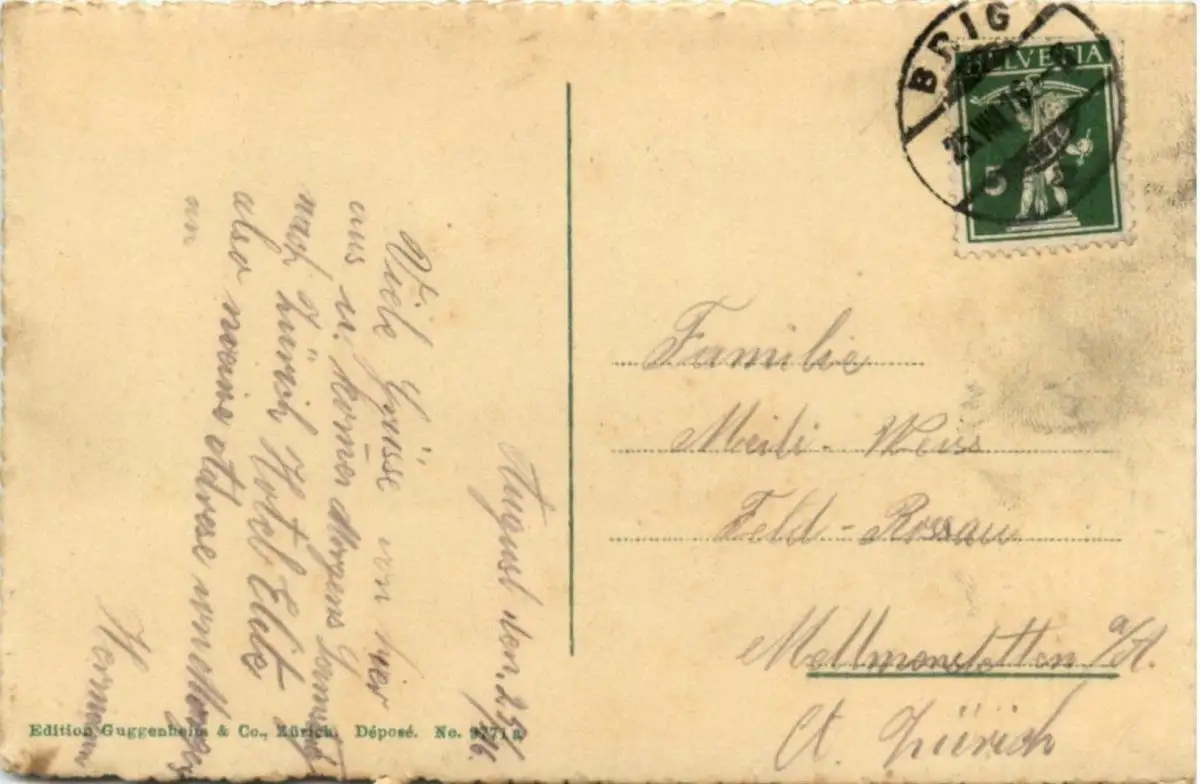 BRIG
25.VIII.16
HELVETIA
5 5
August den. 25/16.
Viele Grüsse von hier
aus u. komme Morgens
nach Zürich Hotel
also meine Adrese
an
Hermann
Familie
Meili-Weiss
Feld-Rossau
Mettmenstetten a/A.
Ct. Zürich
Edition Guggenheim & Co., Zürich. Déposé. No. 9771 a